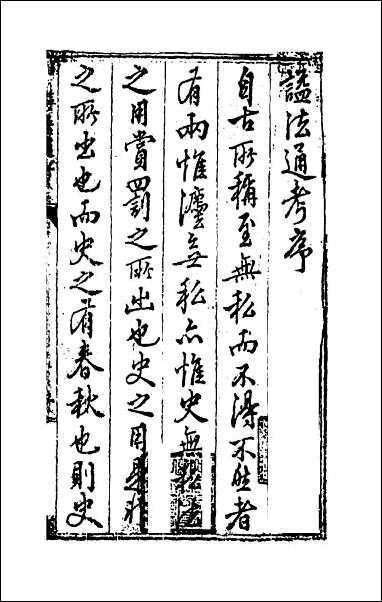 謚法通考序
自古所稱至無私而不得不然者
有兩惟法無私亦惟史無私法
之用賞罰之所出也史之用是非
之所出也而史之有春秋也則史